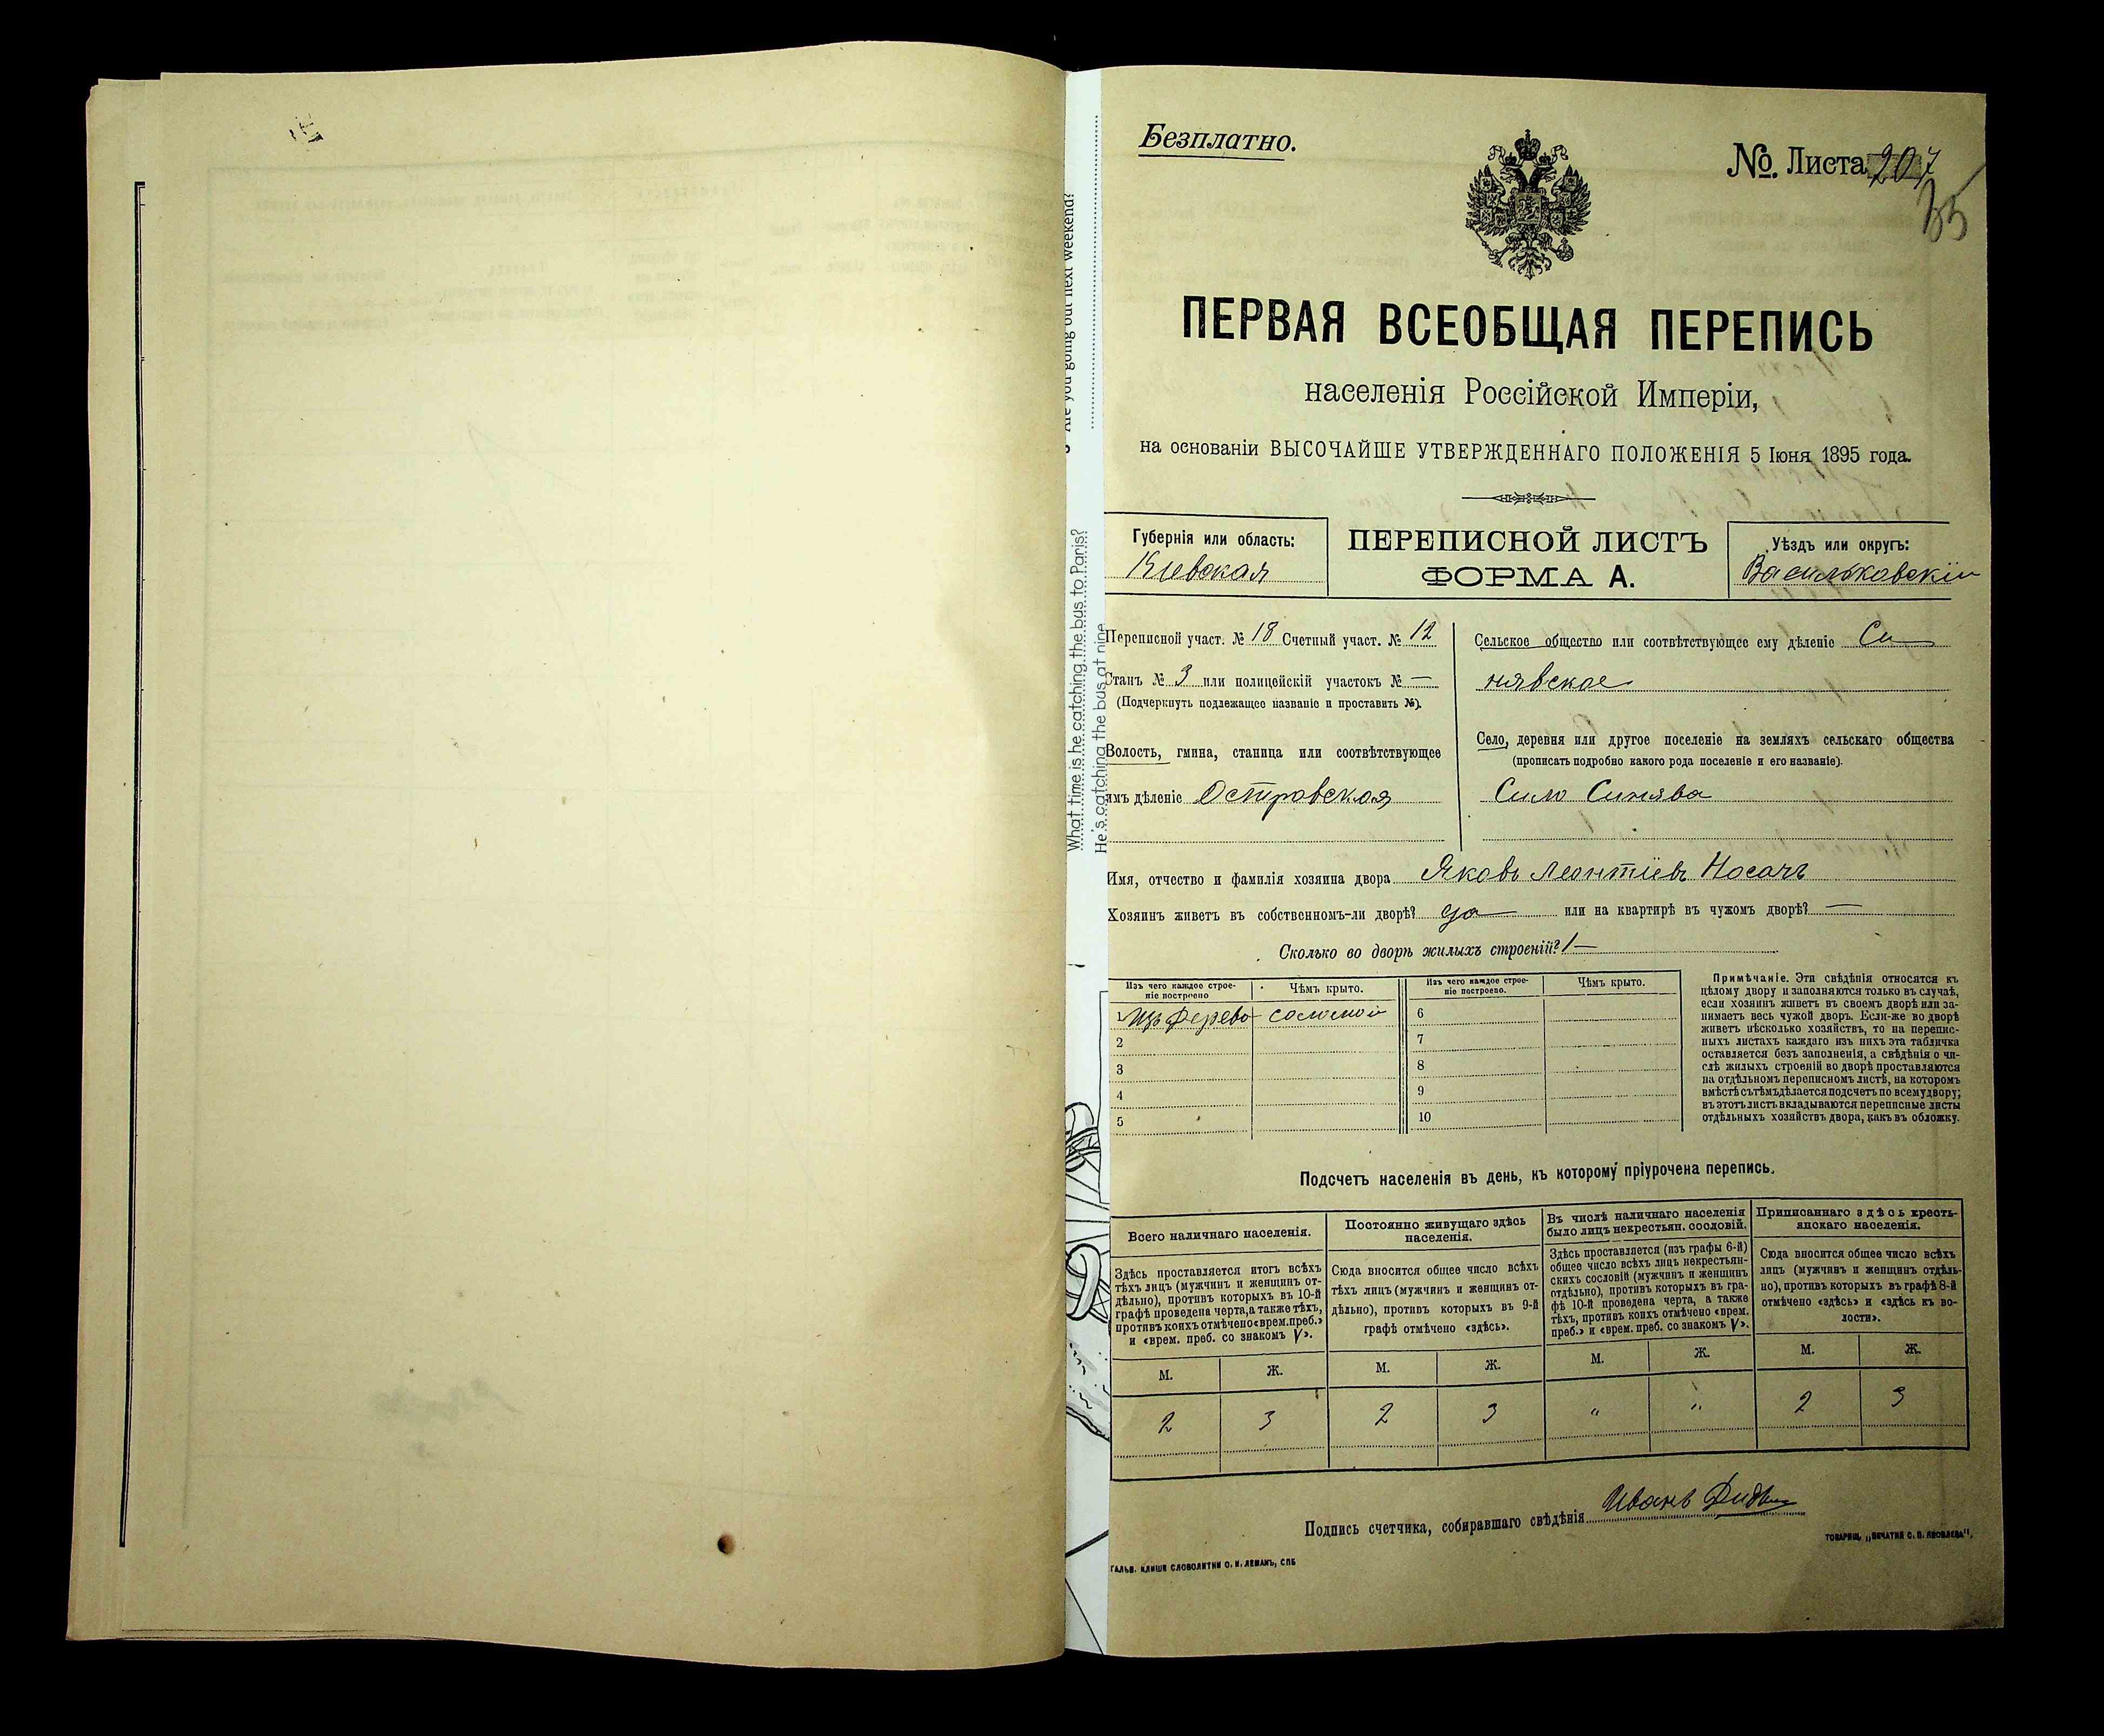 Are you going out next weekend?
What time is he catching the bus to Paris?
He's catching the bus at nine
Безплатно.
№. Листа 207
35
ПЕРВАЯ ВСЕОБЩАЯ ПЕРЕПИСЬ
населенія Россійской Имперіи,
на основаніи ВЫСОЧАЙШЕ УТВЕРЖДЕННАГО ПОЛОЖЕНІЯ 5 Іюня 1895 года.
Губернія или область:
Кіевская
ПЕРЕПИСНОЙ ЛИСТЪ
ФОРМА А.
Уѣздъ или округъ:
Васильковскій
Переписной участ. № 18 Счетный участ. № 12
Станъ № 3 или полицейскій участокъ № —
(Подчеркнуть подлежащее названіе и проставить №).
Волость, гмина, станица или соотвѣтствующее
имъ дѣленіе Островская
Сельское общество или соотвѣтствующее ему дѣленіе Си
нявское
Село, деревня или другое поселеніе на земляхъ сельскаго общества
(прописать подробно какого рода поселеніе и его названіе).
Село Синява
Имя, отчество и фамилія хозяина двора Яковъ Леонтіевъ Носачъ
Хозяинъ живетъ въ собственномъ-ли дворѣ? да или на квартирѣ въ чужомъ дворѣ? —
Сколько во дворѣ жилыхъ строеній? 1 —
Изъ чего каждое строе-
ніе построено
Чѣмъ крыто.
Изъ чего каждое строе-
ніе построено.
Чѣмъ крыто.
1 Изъ дерева соломой
2
3
4
5
6
7
8
9
10
Примѣчаніе. Эти свѣдѣнія относятся къ
цѣлому двору и заполняются только въ случаѣ,
если хозяинъ живетъ въ своемъ дворѣ или за-
нимаетъ весь чужой дворъ. Если-же во дворѣ
живетъ нѣсколько хозяйствъ, то на перепис-
ныхъ листахъ каждаго изъ нихъ эта табличка
оставляется безъ заполненія, а свѣдѣнія о чи-
слѣ жилыхъ строеній во дворѣ проставляются
на отдѣльномъ переписномъ листѣ, на которомъ
вмѣстѣ съ тѣмъ дѣлается подсчетъ по всему двору;
въ этотъ листъ вкладываются переписные листы
отдѣльныхъ хозяйствъ двора, какъ въ обложку.
Подсчетъ населенія въ день, къ которому пріурочена перепись.
Всего наличнаго населенія.
Здѣсь проставляется итогъ всѣхъ
тѣхъ лицъ (мужчинъ и женщинъ от-
дѣльно), противъ которыхъ въ 10-й
графѣ проведена черта, а также тѣхъ,
противъ коихъ отмѣчено «врем. преб.»
и «врем. преб. со знакомъ V».
Постоянно живущаго здѣсь
населенія.
Сюда вносится общее число всѣхъ
тѣхъ лицъ (мужчинъ и женщинъ от-
дѣльно), противъ которыхъ въ 9-й
графѣ отмѣчено «здѣсь».
Въ числѣ наличнаго населенія
было лицъ некрестьян. сословій.
Здѣсь проставляется (изъ графы 6-й)
общее число всѣхъ лицъ некрестьян-
скихъ сословій (мужчинъ и женщинъ
отдѣльно), противъ которыхъ въ гра-
фѣ 10-й проведена черта, а также
тѣхъ, противъ коихъ отмѣчено «врем.
преб.» и «врем. преб. со знакомъ V».
Приписаннаго здѣсь кресть-
янскаго населенія.
Сюда вносится общее число всѣхъ
лицъ (мужчинъ и женщинъ отдѣль-
но), противъ которыхъ въ графѣ 8-й
отмѣчено «здѣсь» и «здѣсь къ во-
лости».
М. Ж. М. Ж. М. Ж. М. Ж.
2 3 2 3 " " 2 3
Подпись счетчика, собиравшаго свѣдѣнія Иванъ
ГАЛЬВ. КЛИШЕ СЛОВОЛИТНИ О. И. ЛЕМАНЪ, СПБ
ТОВАРИЩ. „ПЕЧАТНЯ С. П. ЯКОВЛЕВА",